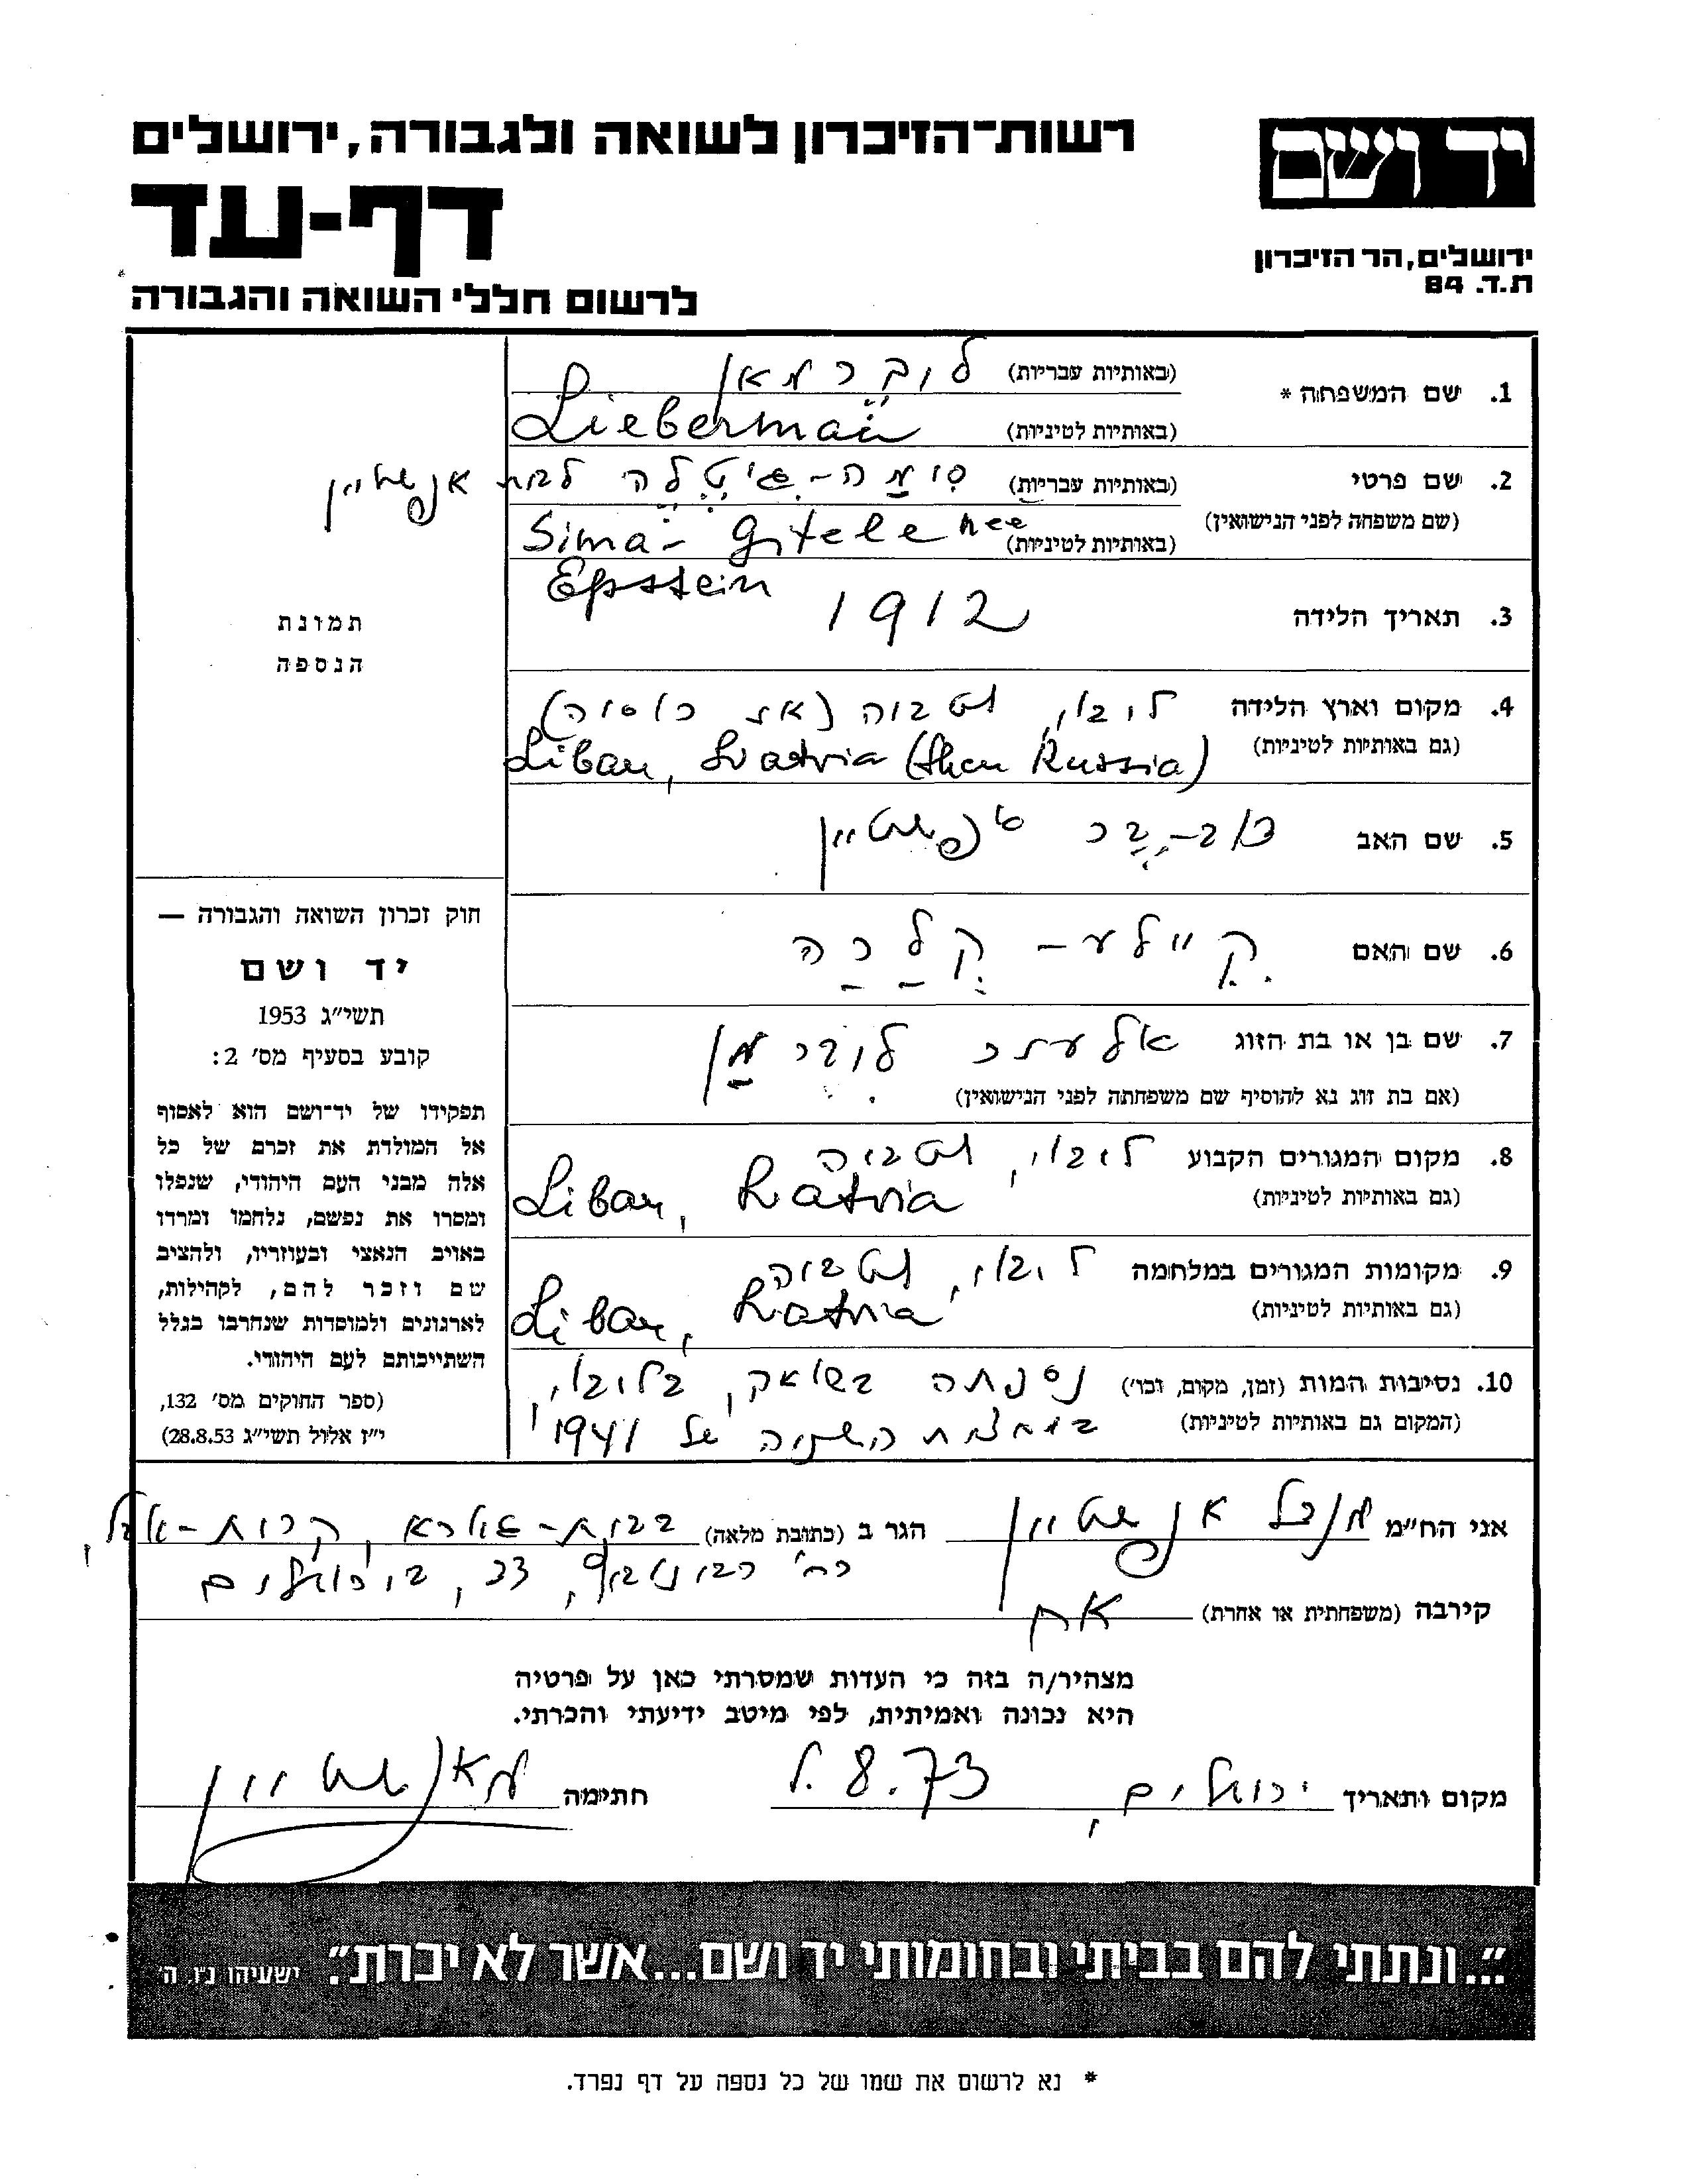 יד ושם
ירושלים, הר הזיכרון
ת.ד. 84
רשות-הזיכרון לשואה ולגבורה, ירושלים
דף-עד
לרשום חללי השואה והגבורה
1. שם המשפחה * (באותיות עבריות) ליברמאן
(באותיות לטיניות) Lieberman
2. שם פרטי (באותיות עבריות) סימה-גיטלה לבית אפשטיין
(שם משפחה לפני הנישואין) (באותיות לטיניות) Sima- Gitele nee
Epstein
3. תאריך הלידה 1912
4. מקום וארץ הלידה ליבוי, לטביה (אז רוסיה)
(גם באותיות לטיניות) Libau, Latvia (then Russia)
5. שם האב דוב-בר אפשטיין
6. שם האם קיילע-
7. שם בן או בת הזוג ליברמן
(אם בת זוג נא להוסיף שם משפחתה לפני הנישואין)
8. מקום המגורים הקבוע ליבוי, לטביה
(גם באותיות לטיניות) Libau, Latvia
9. מקומות המגורים במלחמה ליבוי, לטביה
(גם באותיות לטיניות) Libau, Latvia
10. נסיבות המות (זמן, מקום, וכו') נספתה בשואה, בליבוי,
(המקום גם באותיות לטיניות) במחצית השניה של 1941
תמונת
הנספה
חוק זכרון השואה והגבורה —
יד ושם
תשי"ג 1953
קובע בסעיף מס' 2:
תפקידו של יד-ושם הוא לאסוף
אל המולדת את זכרם של כל
אלה מבני העם היהודי, שנפלו
ומסרו את נפשם, נלחמו ומרדו
באויב הנאצי ובעוזריו, ולהציב
שם וזכר להם, לקהילות,
לארגונים ולמוסדות שנחרבו בגלל
השתייכותם לעם היהודי.
(ספר החוקים מס' 132,
י"ז אלול תשי"ג 28.8.53)
אני הח"מ מנדל אפשטיין הגר ב (כתובת מלאה) קרית-יובל,
רח' 33, בירושלים
קירבה (משפחתית או אחרת) אח
מצהיר/ה בזה כי העדות שמסרתי כאן על פרטיה
היא נכונה ואמיתית, לפי מיטב ידיעתי והכרתי.
מקום ותאריך ירושלים, 1.8.73 חתימה מ אפשטיין
"...ונתתי להם בביתי ובחומותי יד ושם...אשר לא יכרת". ישעיהו נ"ו, ה'
* נא לרשום את שמו של כל נספה על דף נפרד.